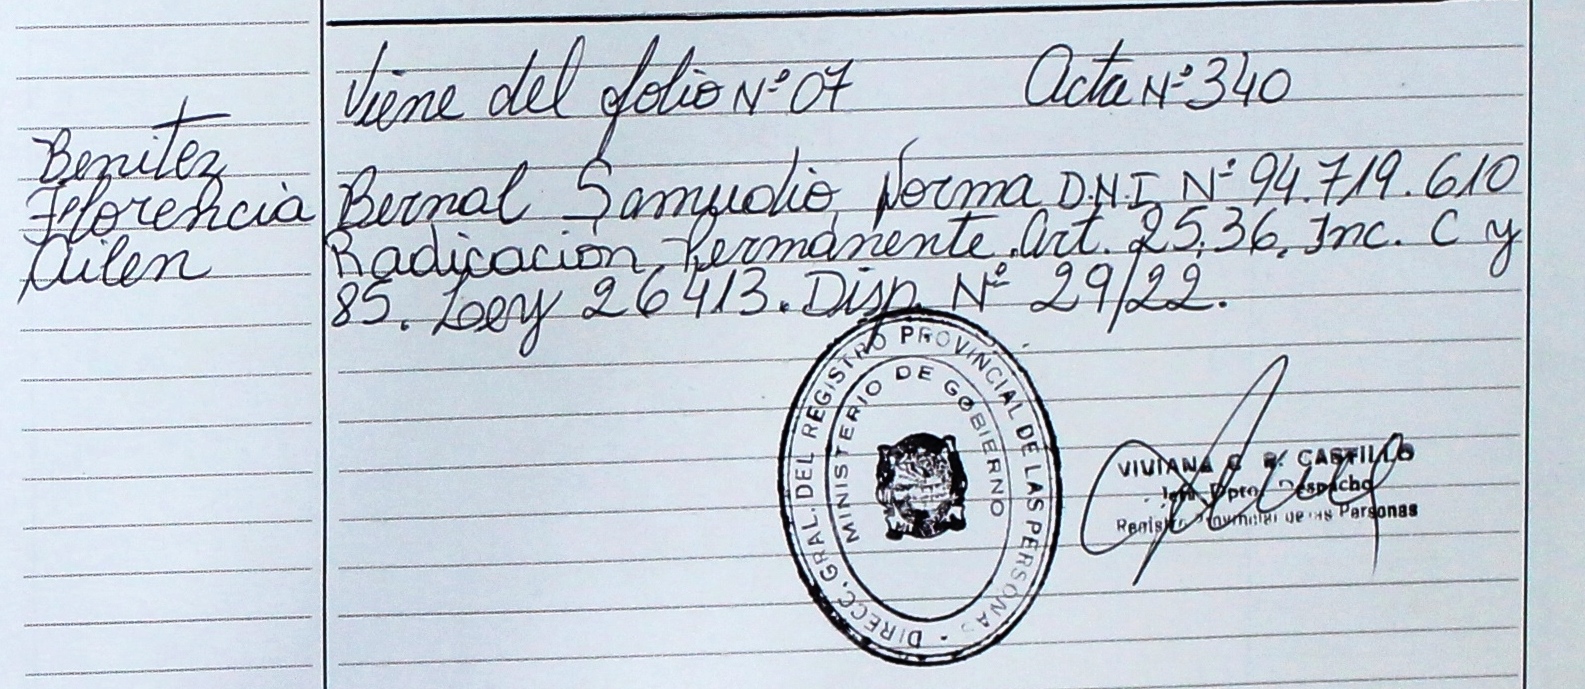 Viene del folio Nº 07 Acta Nº 340
Benitez
Florencia
Ailen
Bernal Samudio, Norma D.N.I. Nº 94.719.610
Radicación Permanente. Art. 25, 36, Inc. C y
85. Ley 26413. Disp. Nº 29/22.
DIRECC. GRAL. DEL REGISTRO PROVINCIAL DE LAS PERSONAS
MINISTERIO DE GOBIERNO
VIVIANA CASTILLO
Jefa Dpto. Despacho
Registro Provincial de las Personas